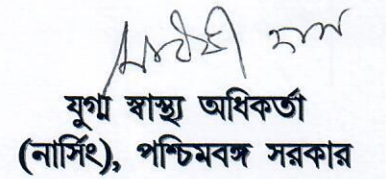 যুগ্ম স্বাস্থ্য অধিকর্তা
(নার্সিং), পশ্চিমবঙ্গ সরকার